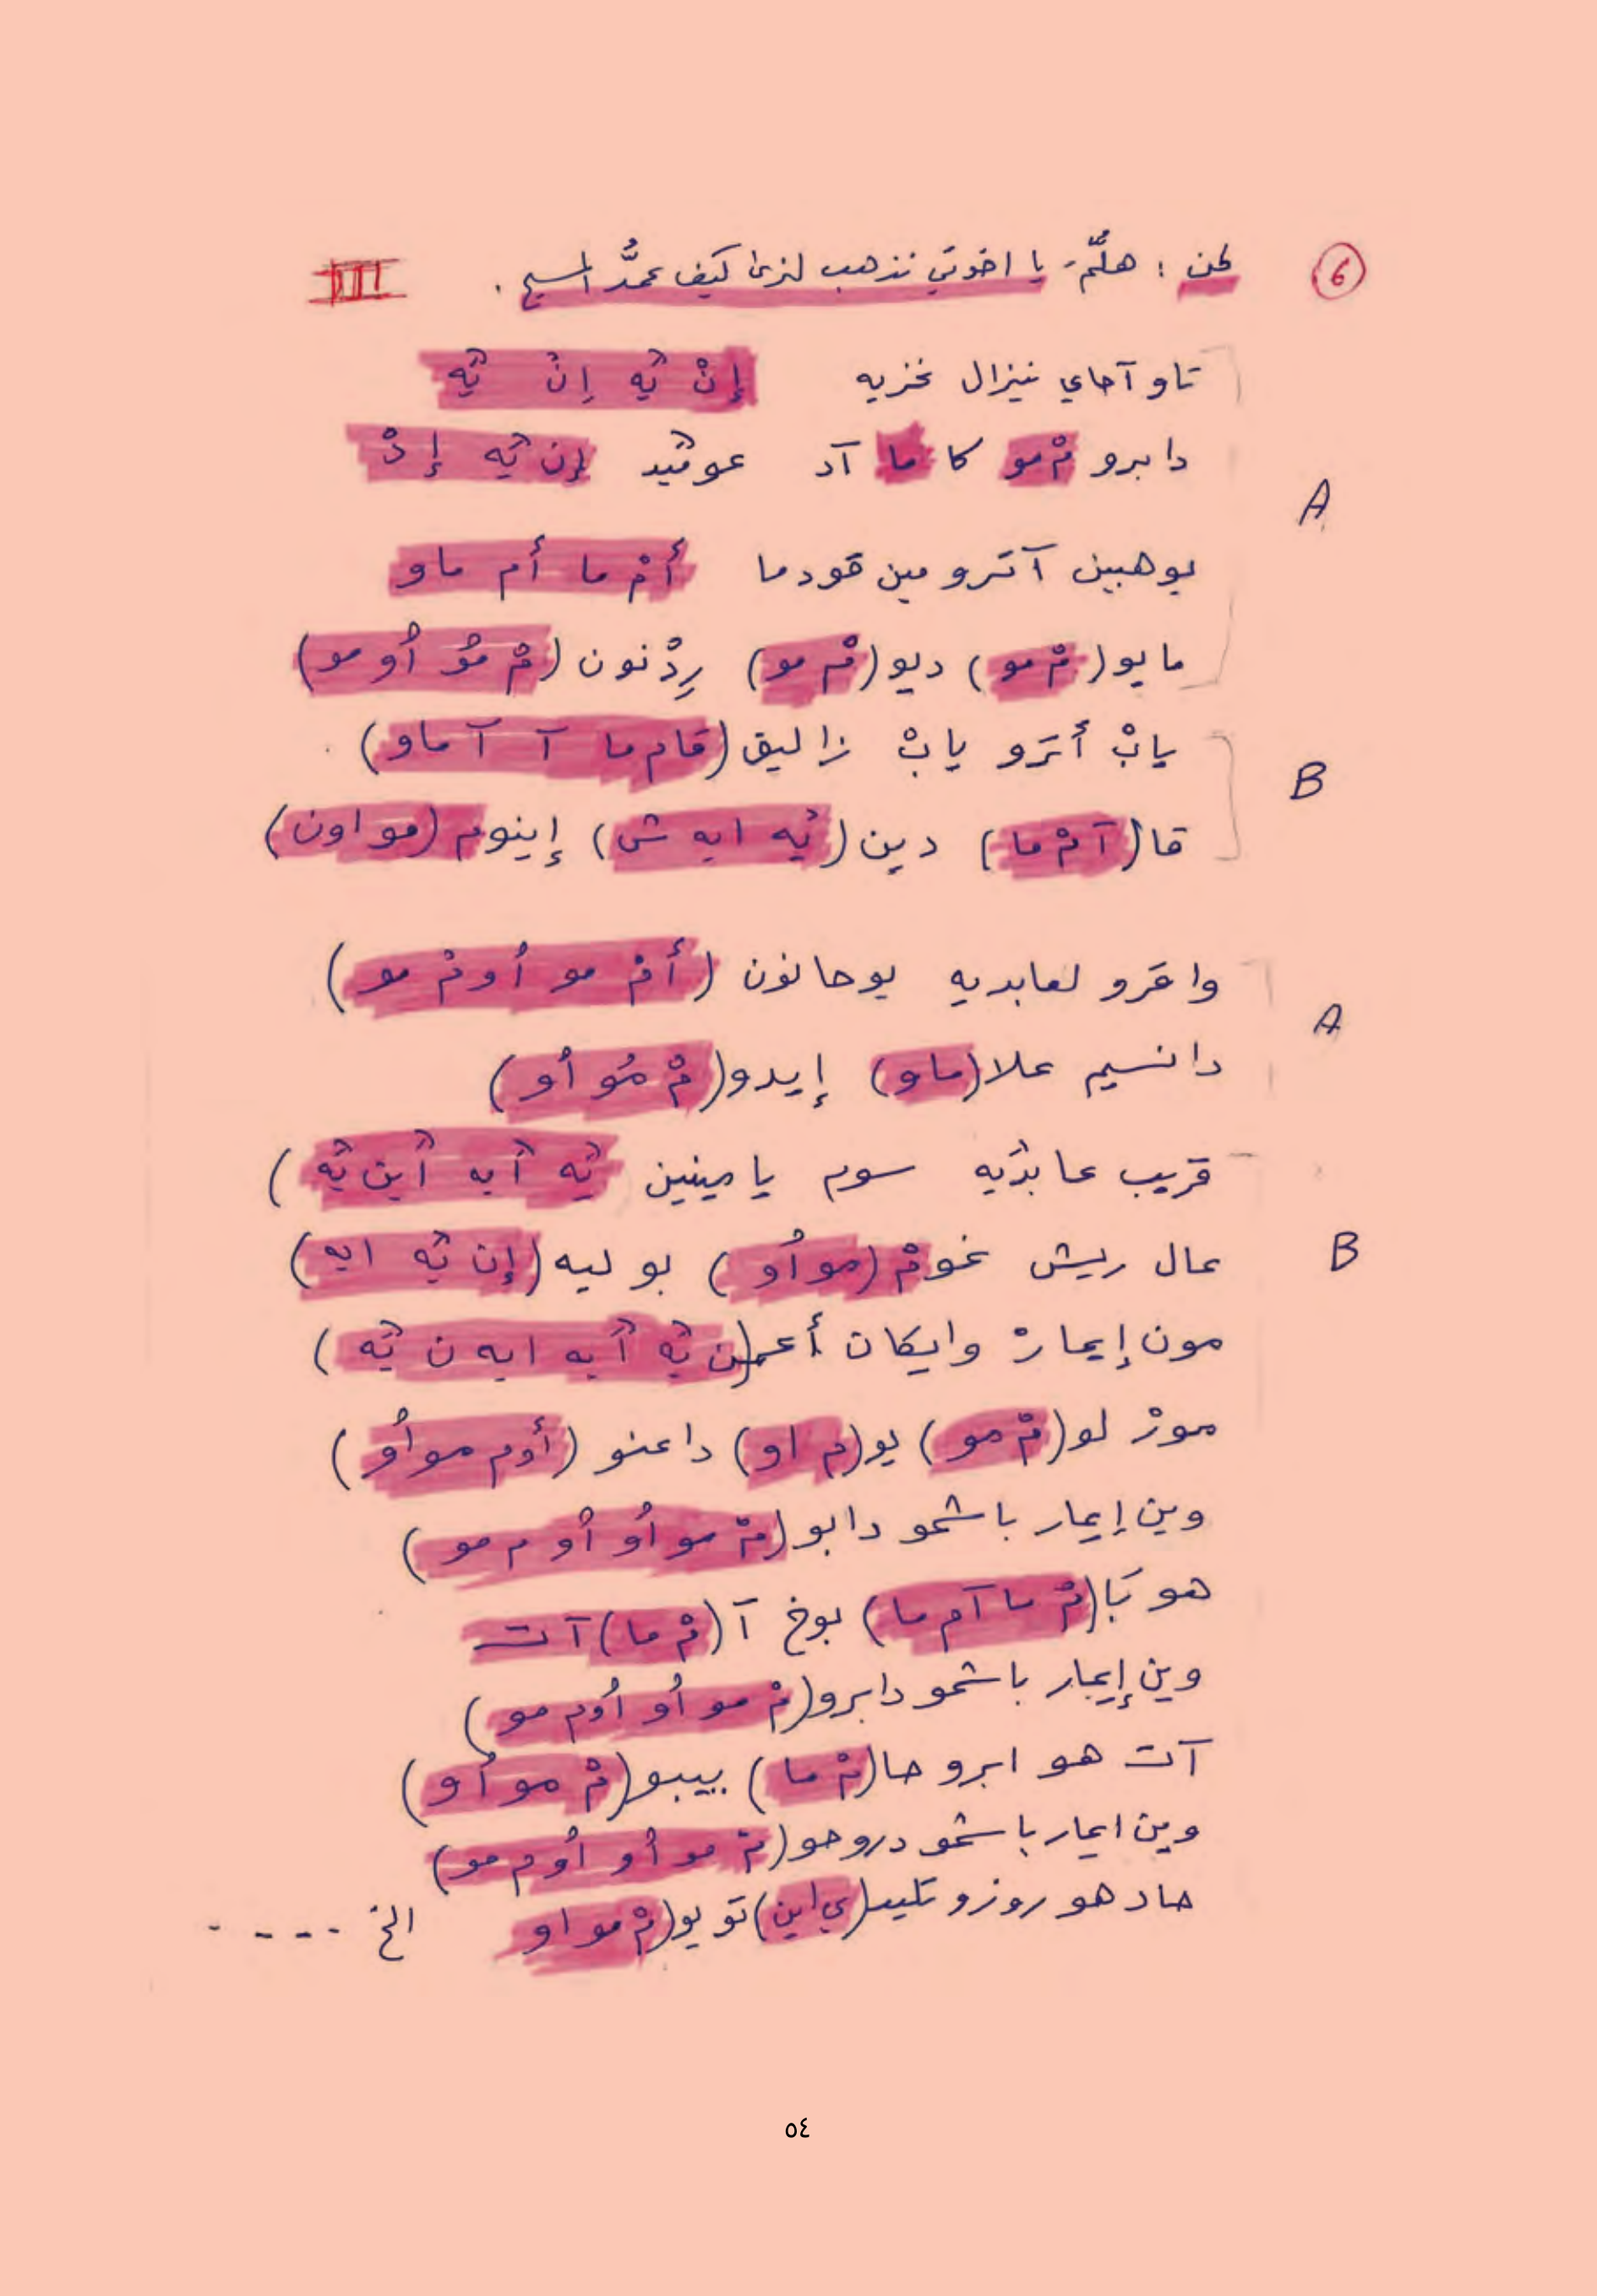 6 لحن : هلُمّ يا اخوتي نذهب لنرى كيف عمدُّ المسيح . III
تاو آحاي نيزال نخزيه إنْ يّه إنْ يّه
دابرو مْ مو كا ما آد عوقيد إن يّه إدْ
A
يوهبين آترو مين قودما أمْ ما أم ماو
مايو (مْ مو) ديو (مْ مو) رِدْنون (مْ مُو أُو مو)
يابْ أترو يابْ زاليق (قام ما آ آ ماو) .
B
قا (آ مْ ما) دين (يّه ايه ش) إينوم (مو اون)
واقرو لعابديه يوحانون (أمْ مو أُومْ مو)
A
دانسيم علا (ماو) إيدو (مْ مُو أُو)
قريب عابدّيه سوم يامينين يّه آيه آين يّه)
B
عال ريش غومْ (مو أُو) بوليه (إن يّه ايه)
مون إيمارْ وايكان أعم (ن يّه آيه ايه ن يّه)
مورْ لو (مْ مو) يو (م او) داعنو (أوم مو أُو)
وين إيمار باشمو دابو (مْ مو أُو أُو م مو)
هو بَا (مْ ما آم ما) بوخ آ (مْ ما) آت
وين إيمار باشمو دابرو (مْ مو أُو أُوم مو)
آت هو ابرو حا (مْ ما) بيبو (مْ مو أُو)
وين ايمار باشمو دروحو (مْ مو أُو أُوم مو)
حاد هو روزو تليـ (ي اين) تو يو (مْ مو او الخ - - - -
٥٤